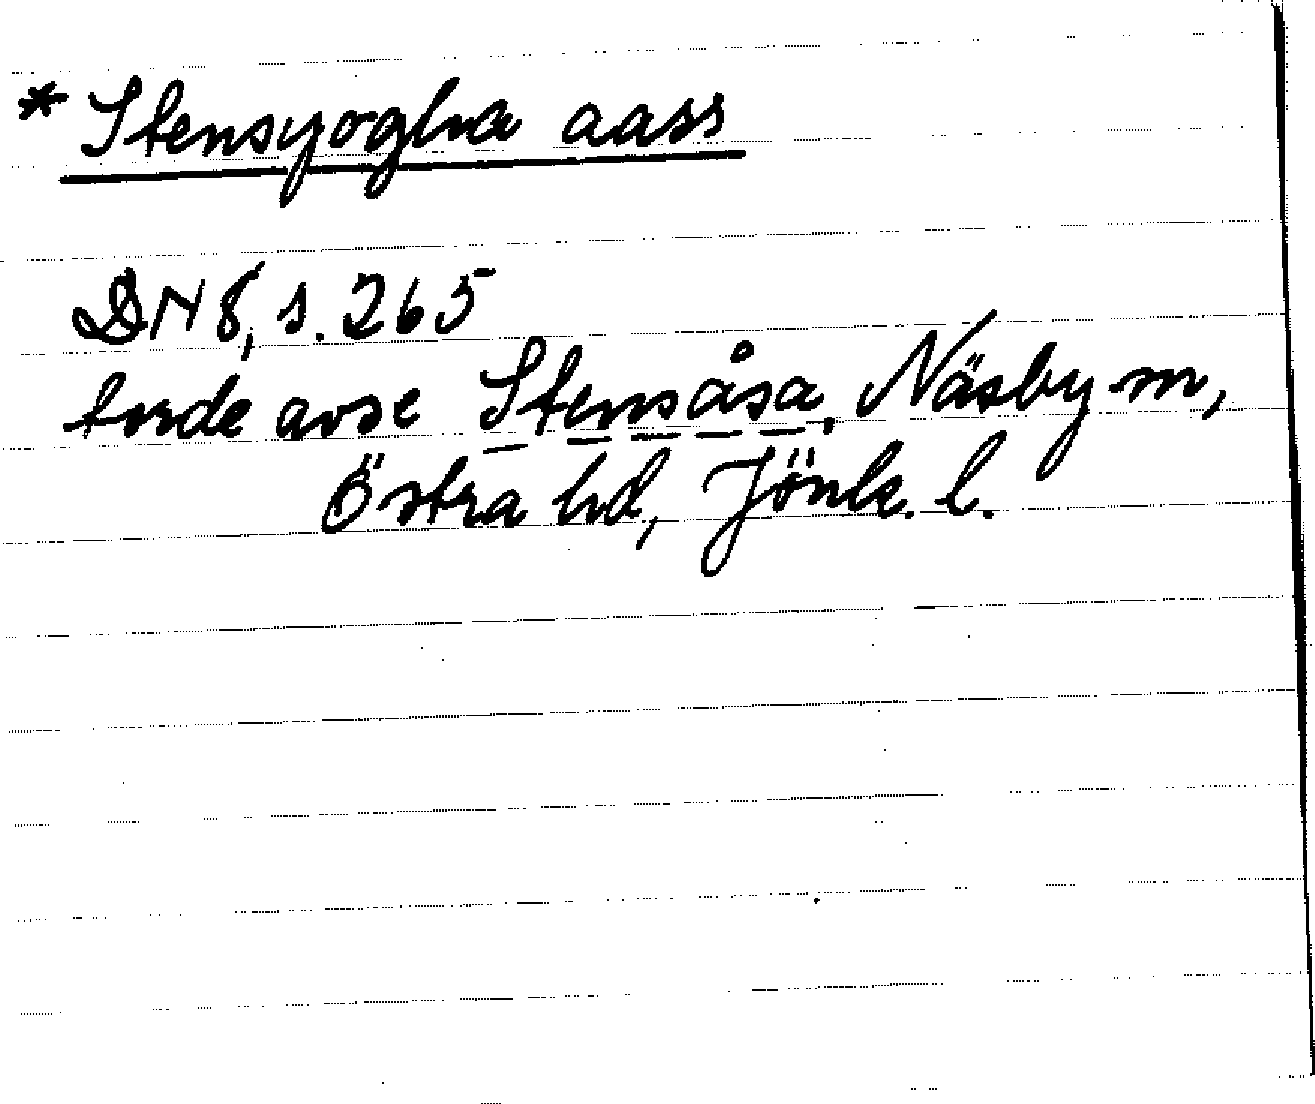 * Stensyogha aass
DN 8, s. 265
torde avse Stensåsa, Näsby sn,
Östra hd, Jönk. l.